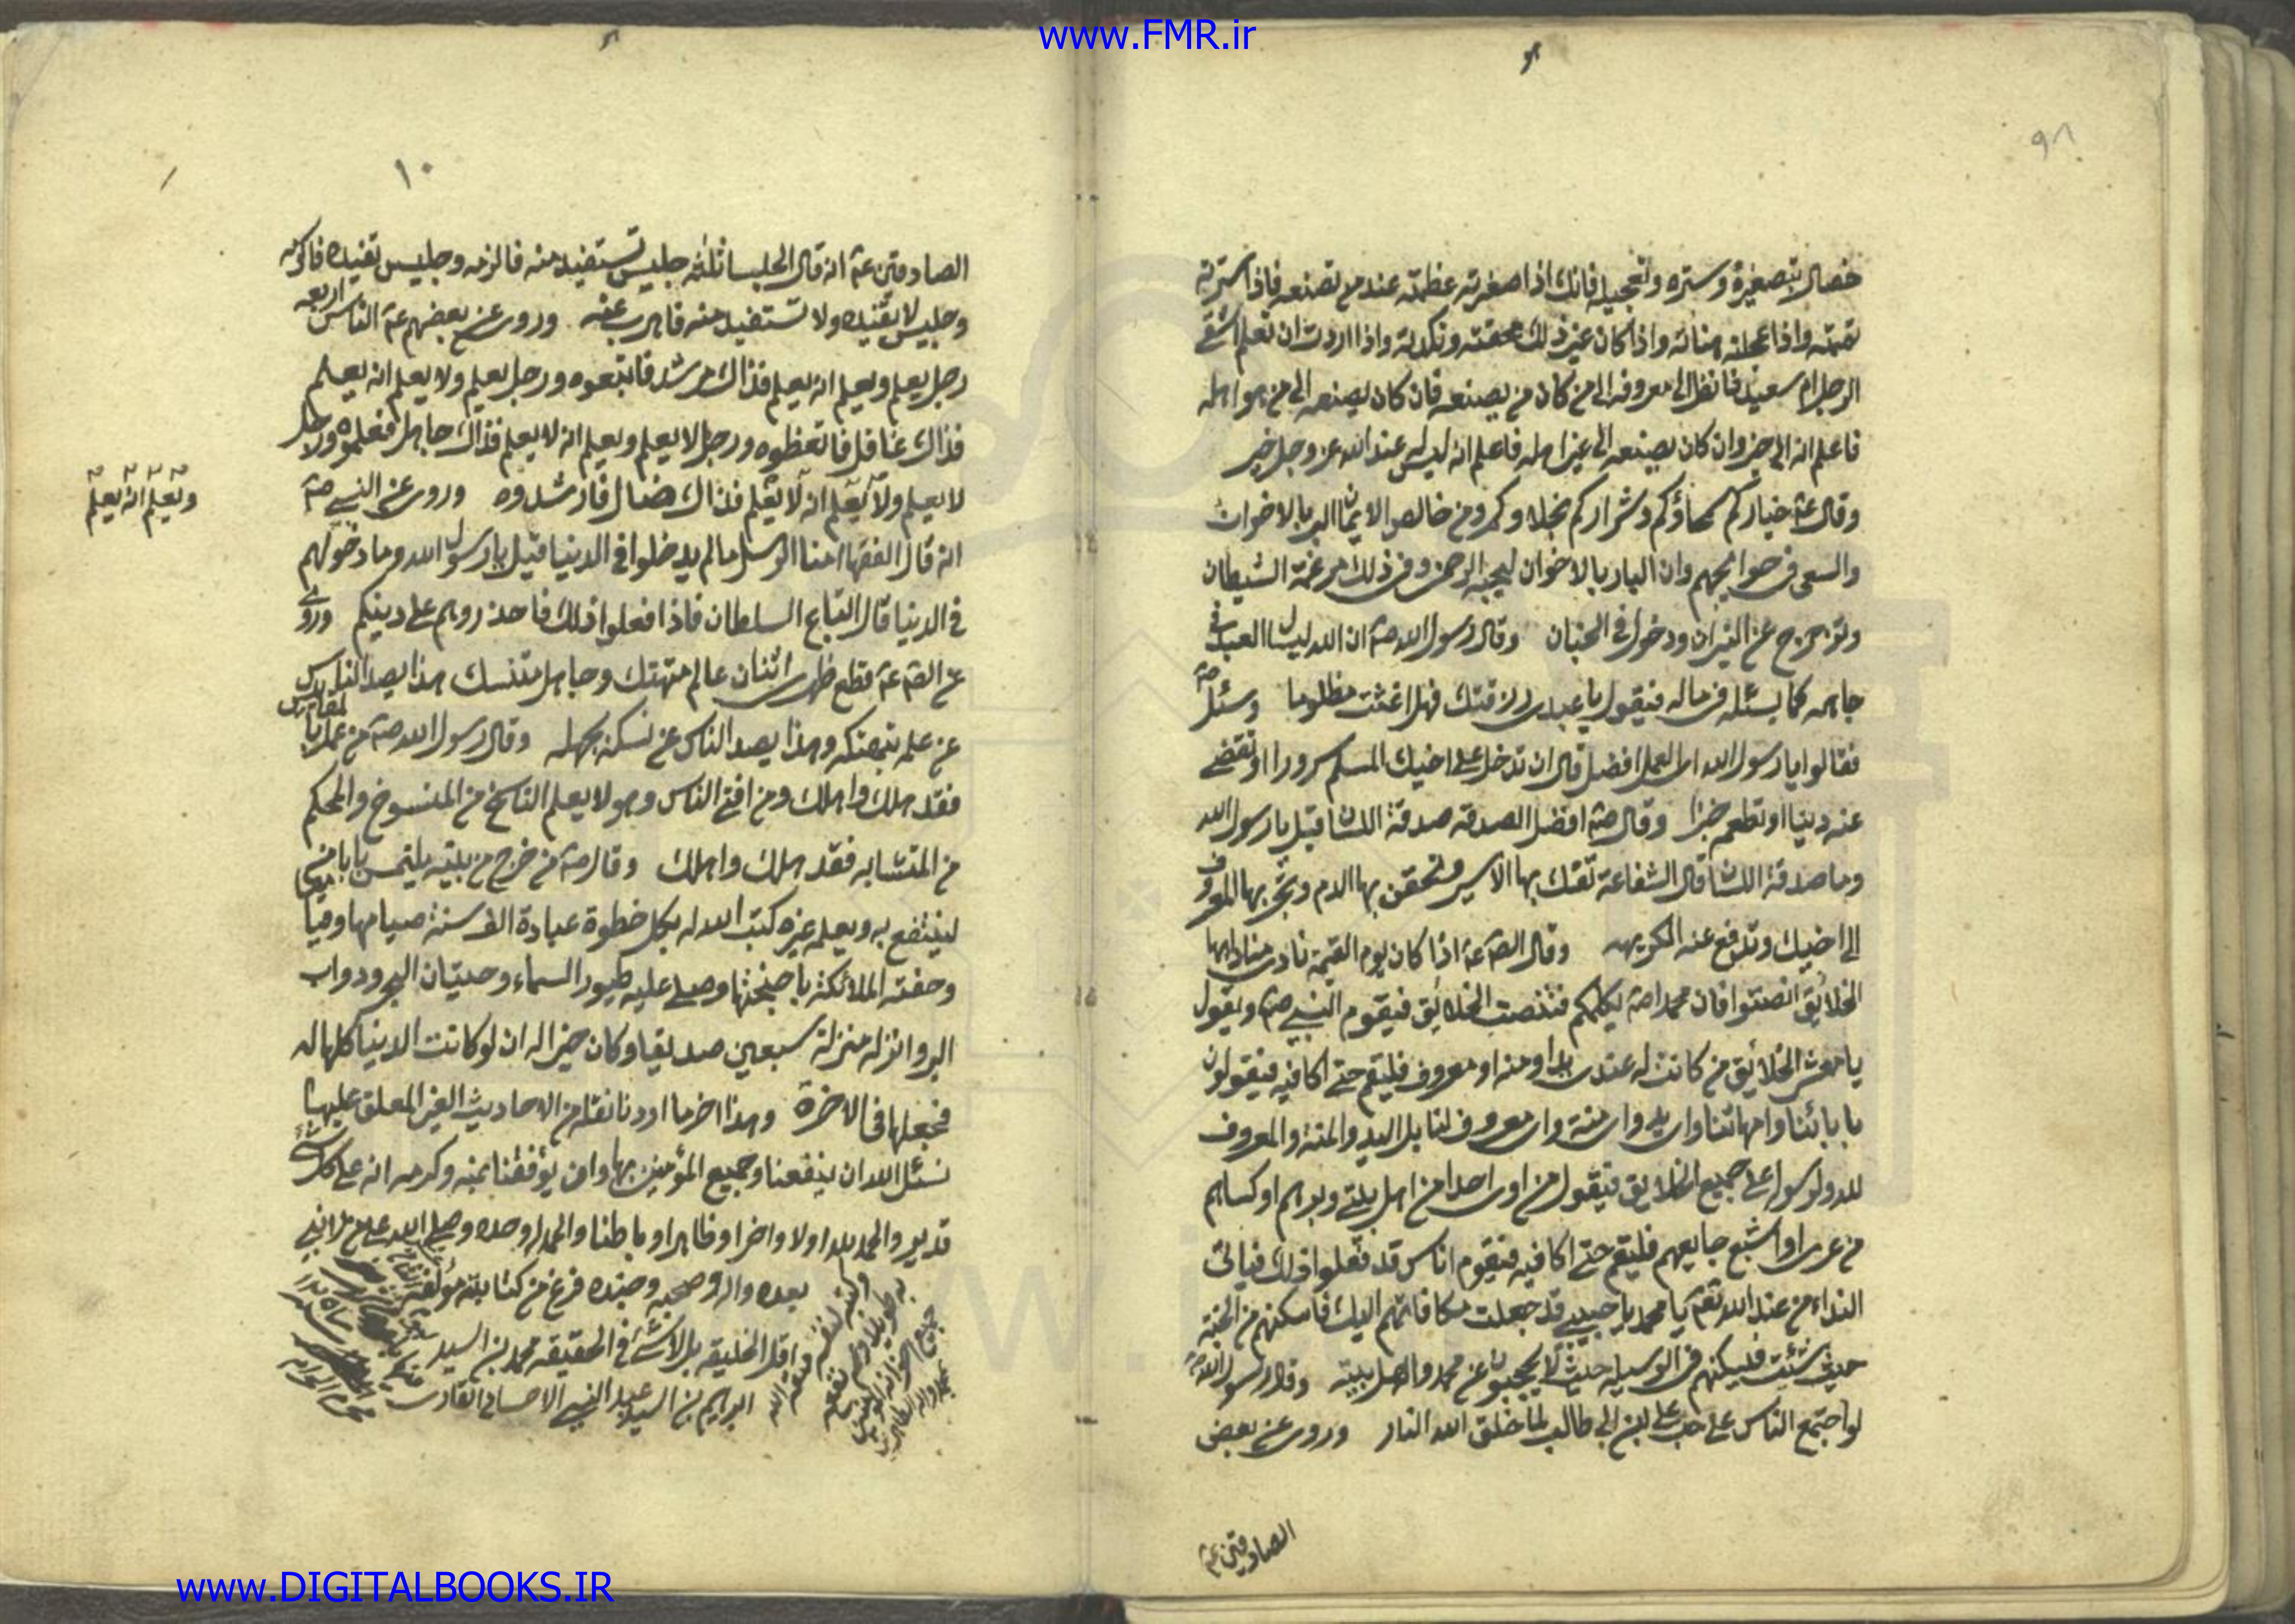 www.FMR.ir
٩٨
خصال بتصغيره وستره وتعجيله فانك اذا صغرته عظمته عند من تصنعه فاذا سترته
تممته واذا عجلته هنأته واذا كان غير ذلك محقته ونكدته واذا اردت ان تعلم اشقى
الرجل ام سعيد فانظر الى معروفه الى من كان من يصنعه فان كان يصنعه الى من هو اهله
فاعلم انه الى خير وان كان يصنعه الى غير اهله فاعلم انه ليس عند الله عز وجل خير
وقال عۃ خياركم سمحاؤكم وشراركم بخلاوكم ومن خالص الايمان البر بالاخوان
والسعى فى حوايجهم وان البار بالاخوان ليحبه الرحمن وفى ذلك مرغمة الشيطان
وتزحزح عن النيران ودخول فى الجنان وقال رسول الله صۃ ان الله ليسال العبد فى
جاهه كما يسئله فى ماله فيقول يا عبدى رزقتك فهل اغثت مظلوما وسئل صۃ
فقالوا يا رسول الله اى العمل افضل قال ان تدخل على اخيك المسلم سرورا او تقضے
عنه دينا او تطعمه خبزا وقال صۃ افضل الصدقه صدقة اللسان قيل يا رسول الله
وما صدقة اللسان قال الشفاعة تفك بها الاسير وتحقن بها الدم وتجر بها المعروف
الى اخيك وتدفع عنه الكريهه وقال الصۃ عۃ اذا كان يوم القيمة نادى مناد ايها
الخلائق انصتوا فان محمدا صۃ يكلمكم فتنصت الخلائق فيقوم النبى صۃ ويقول
يا معشر الخلائق من كانت له عندى يد او منه او معروف فليقم حتى اكافيه فيقولون
بابائنا وامهاتنا واى يد واى منة واى معروف لنا بل اليد والمنة والمعروف
لله ولرسوله على جميع الخلايق فيقول من اوى احدا من اهل بيتى او برهم او كساهم
من عرى او اشبع جايعهم فليقم حتى اكافيه فيقوم اناس قد فعلوا ذلك فياتى
النداء من عند الله تعۃ يا محمد يا حبيبى قد جعلت مكافاتهم اليك فاسكنهم من الجنة
حيث شئت فليسكنهم فى الوسيله حيث لا يحجبون عن محمد واهل بيته وقال رسول الله صۃ
لو اجتمع الناس على حب على بن ابى طالب لما خلق الله النار وروى عن بعض
الصادقين عۃ
١٠
الصادقين عۃ انه قال الجلسا ثلثه جليس تستفيد منه فالزمه وجليس تفيده فاكرمه
وجليس لا تفيده ولا تستفيد منه فاهرب عنه وروى عن بعضهم عۃ الناس اربعه
رجل يعلم ويعلم انه يعلم فذاك مرشد فاتبعوه ورجل يعلم ولا يعلم انه يعلم
فذاك غافل فايقظوه ورجل لا يعلم ويعلم انه لا يعلم فذاك جاهل فعلموه ورجل
لا يعلم ولا يعلم انه لا يعلم فذاك ضال فارشدوه وروى عن النبى صۃ
ويعلم انه يعلم
انه قال الفقها امنا الرسل ما لم يدخلوا فى الدنيا قيل يا رسول الله وما دخولهم
فى الدنيا قال اتباع السلطان فاذا فعلوا ذلك فاحذروهم على دينكم وروى
عن الصۃ عۃ قطع ظهرى اثنان عالم متهتك وجاهل متنسك هذا يصد الناس
عن علمه بتهتكه وهذا يصد الناس عن نسكه بجهله وقال رسول الله صۃ من عمل بالمقاييس
فقد هلك واهلك ومن افتى الناس وهو لا يعلم الناسخ من المنسوخ والمحكم
من المتشابه فقد هلك واهلك وقال صۃ من خرج من بيته يلتمس بابا من العلم
لينتفع به ويعلمه غيره كتب الله له بكل خطوة عبادة الف سنة صيامها وقيامها
وحفته الملائكة باجنحتها وصلى عليه طيور السماء وحيتان البحر ودواب
البر وانزله منزلة سبعين صديقا وكان خيرا له ان لو كانت الدنيا كلها له
فجعلها فى الاخرة وهذا اخر ما اردنا نقله من الاحاديث الغير المعلق عليها
نسئل الله ان ينفعنا وجميع المؤمنين بها وان يوفقنا بمنه وكرمه انه على كل شئ
قدير والحمد لله اولا واخرا وظاهرا وباطنا والحمد لله وحده وصلى الله على من لا نبى
بعده واله وصحبه وجنده فرغ من كتابته مؤلفه
اقل الخليقه بل لا شئ فى الحقيقه محمد بن السيد
ابراهيم بن السيد عبد النبى الاحسائى القارى
www.DIGITALBOOKS.IR